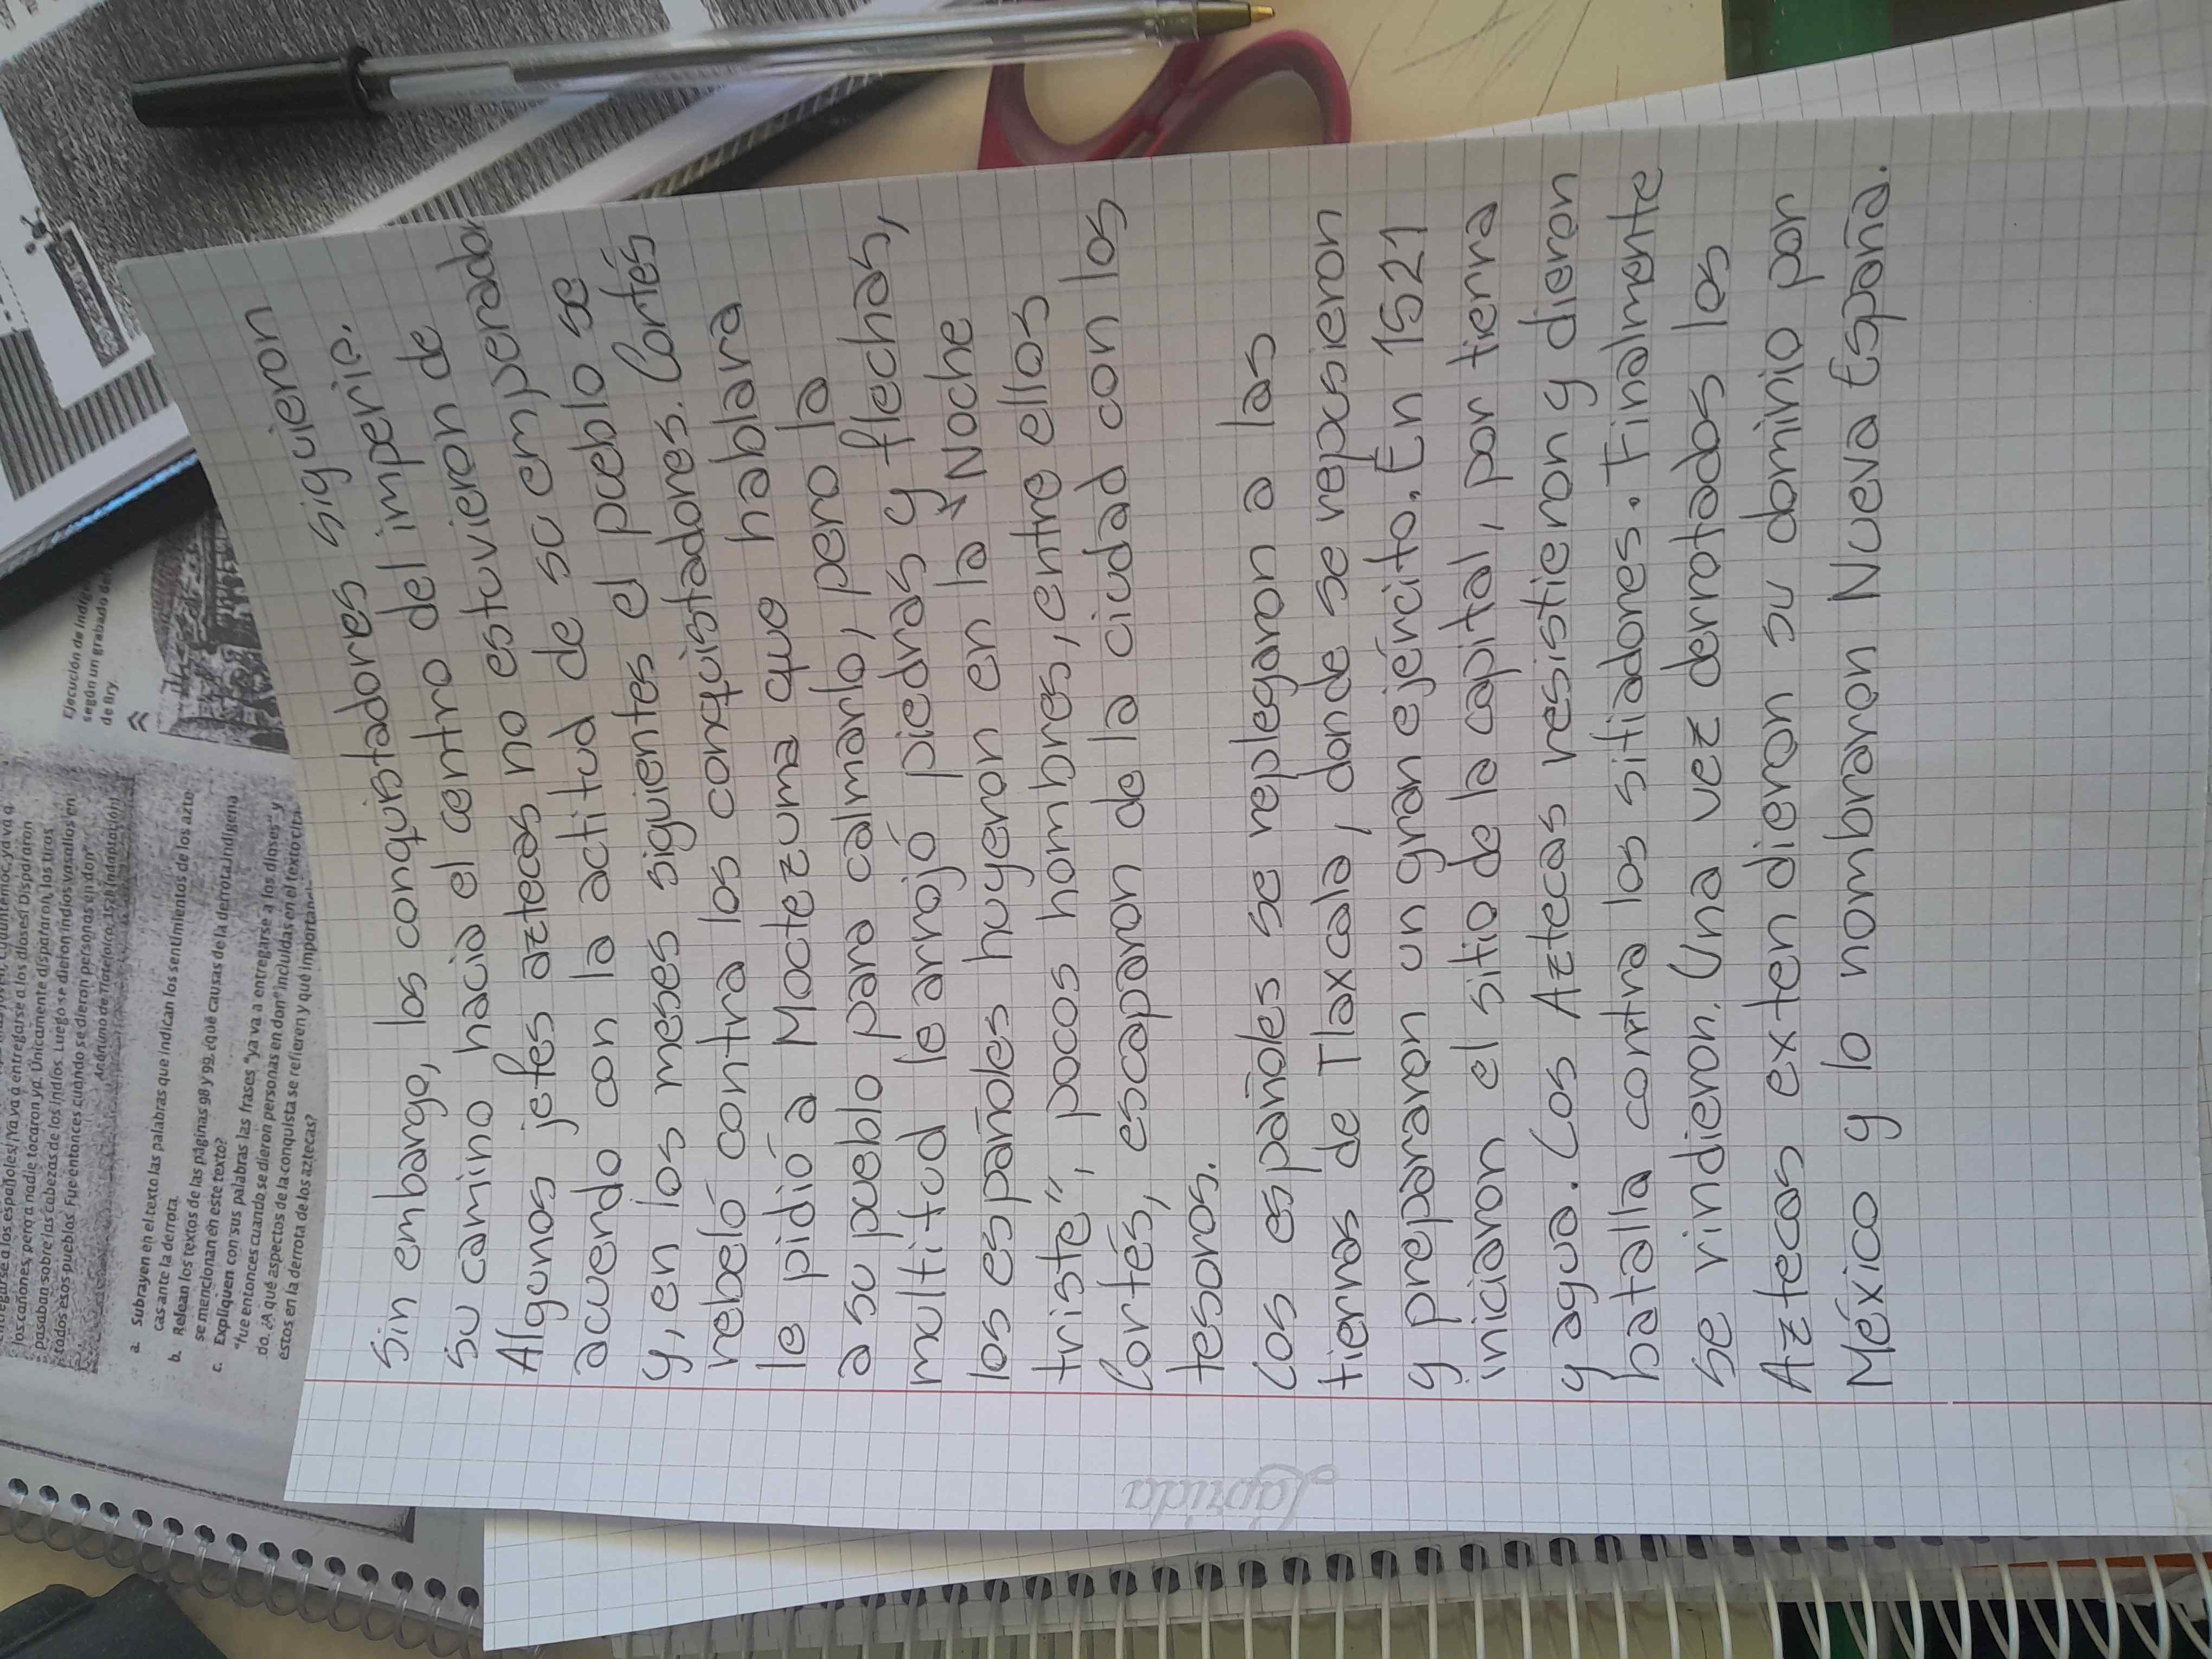 Sin embargo, los conquistadores siguieron
su camino hacia el centro del imperio.
Algunos jefes aztecas no estuvieron de
acuerdo con la actitud de su emperador
y, en los meses siguientes el pueblo se
rebeló contra los conquistadores. Cortés
le pidió a Moctezuma que hablara
a su pueblo para calmarlo, pero la
multitud le arrojó piedras y flechas,
los españoles huyeron en la "Noche
triste", pocos hombres, entre ellos
Cortés, escaparon de la ciudad con los
tesoros.
Los españoles se replegaron a las
tierras de Tlaxcala, donde se repusieron
y prepararon un gran ejército. En 1521
iniciaron el sitio de la capital, por tierra
y agua. Los Aztecas resistieron y dieron
batalla contra los sitiadores. Finalmente
se rindieron. Una vez derrotados los
Aztecas extendieron su dominio por
México y lo nombraron Nueva España.
Laprida
entregarse a los españoles! ¡Ya va a entregarse a los dioses! Dispararon
los cañones, pero a nadie tocaron ya. Únicamente dispararon, los tiros
pasaban sobre las cabezas de los indios. Luego se dieron indios vasallos en
todos esos pueblos. Fue entonces cuando se dieron personas en don"
Anónimo de Tlatelolco, 1528 (adaptación)
a. Subrayen en el texto las palabras que indican los sentimientos de los azte-
cas ante la derrota.
b. Relean los textos de las páginas 98 y 99. ¿Qué causas de la derrota indígena
se mencionan en este texto?
c. Expliquen con sus palabras las frases "ya va a entregarse a los dioses" y
"fue entonces cuando se dieron personas en don" incluidas en el texto cita-
do. ¿A qué aspectos de la conquista se refieren y qué importan
estos en la derrota de los aztecas?
Ejecución de indíg
según un grabado de
de Bry.